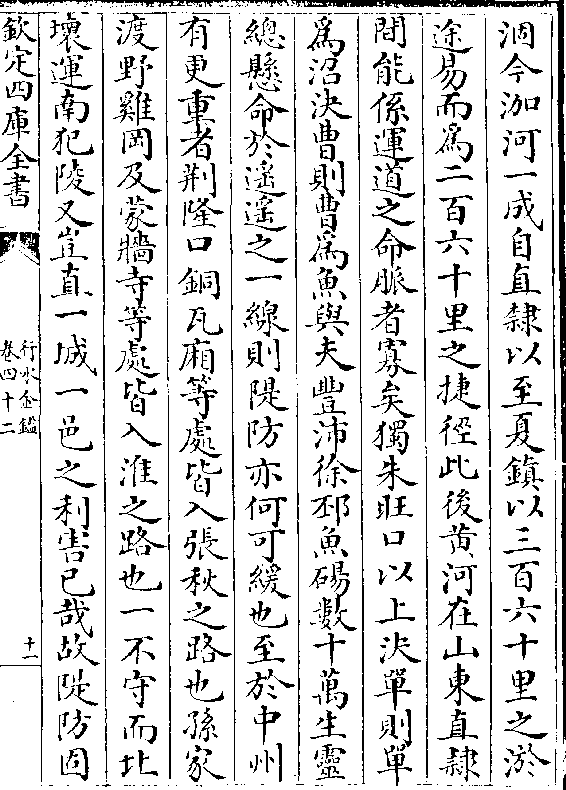 涸今泇河一成自直隸以至夏鎮以三百六十里之淤
途易而為二百六十里之捷徑此後黄河在山東直隸
間能係運道之命脈者寡矣獨朱旺口以上決單則單
為沼決曹則曹為魚與夫豐沛徐邳魚碭數十萬生靈
總懸命於遥遥之一線則隄防亦何可緩也至於中州
有更重者荆隆口銅瓦廂等處皆入張秋之路也孫家
渡野雞岡及蒙牆寺等處皆入淮之路也一不守而北
壞運南犯陵又豈直一城一邑之利害已哉故隄防固
欽定四庫全書
行水金鑑
卷四十二
十一